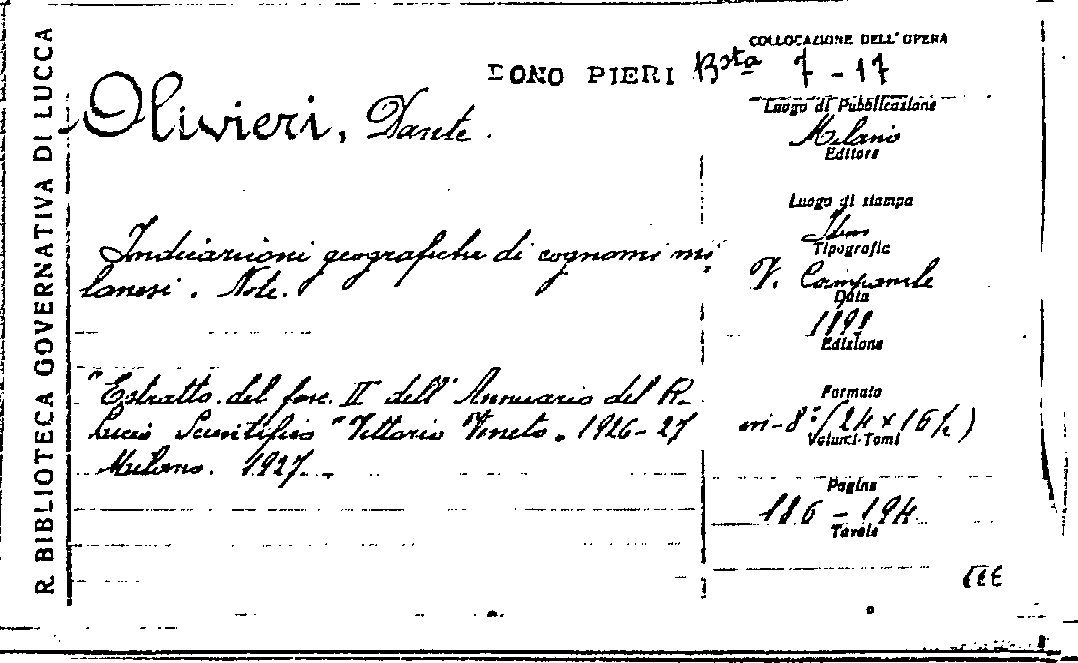 R. BIBLIOTECA GOVERNATIVA DI LUCCA
COLLOCAZIONE DELL'OPERA
DONO PIERI Bsta 7 - 17
Olivieri, Dante.
Luogo di Pubblicazione
Milano
Editore
Luogo di stampa
Idem
Tipografia
Indicazioni geografiche di cognomi mi-
lanesi. Note.
V. Campanile
Data
Edizione
"Estratto del fasc. II dell'Annuario del R.
Liceo Scientifico "Vittorio Veneto" 1926-27
Milano. 1927.
Formato
in-8° (24 x 16½)
Volumi-Tomi
Pagine
186 - 194
Tavole